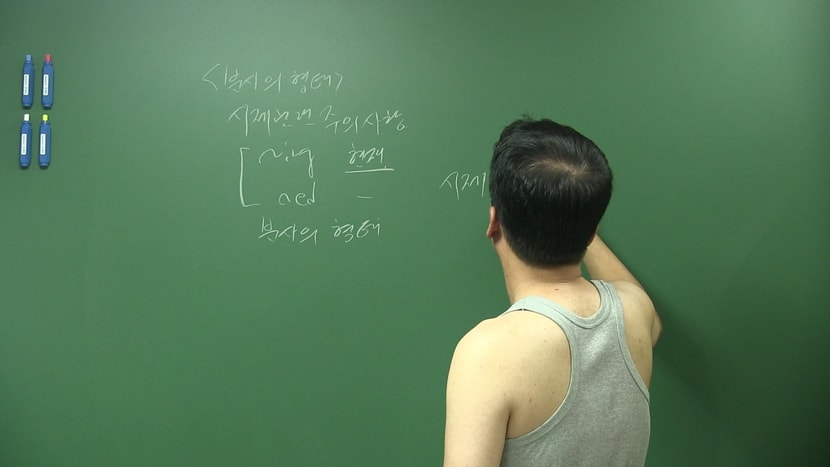 <분사의 형태>
시제관련 주의사항
~ing 현재
~ed —
분사의 형태
시제